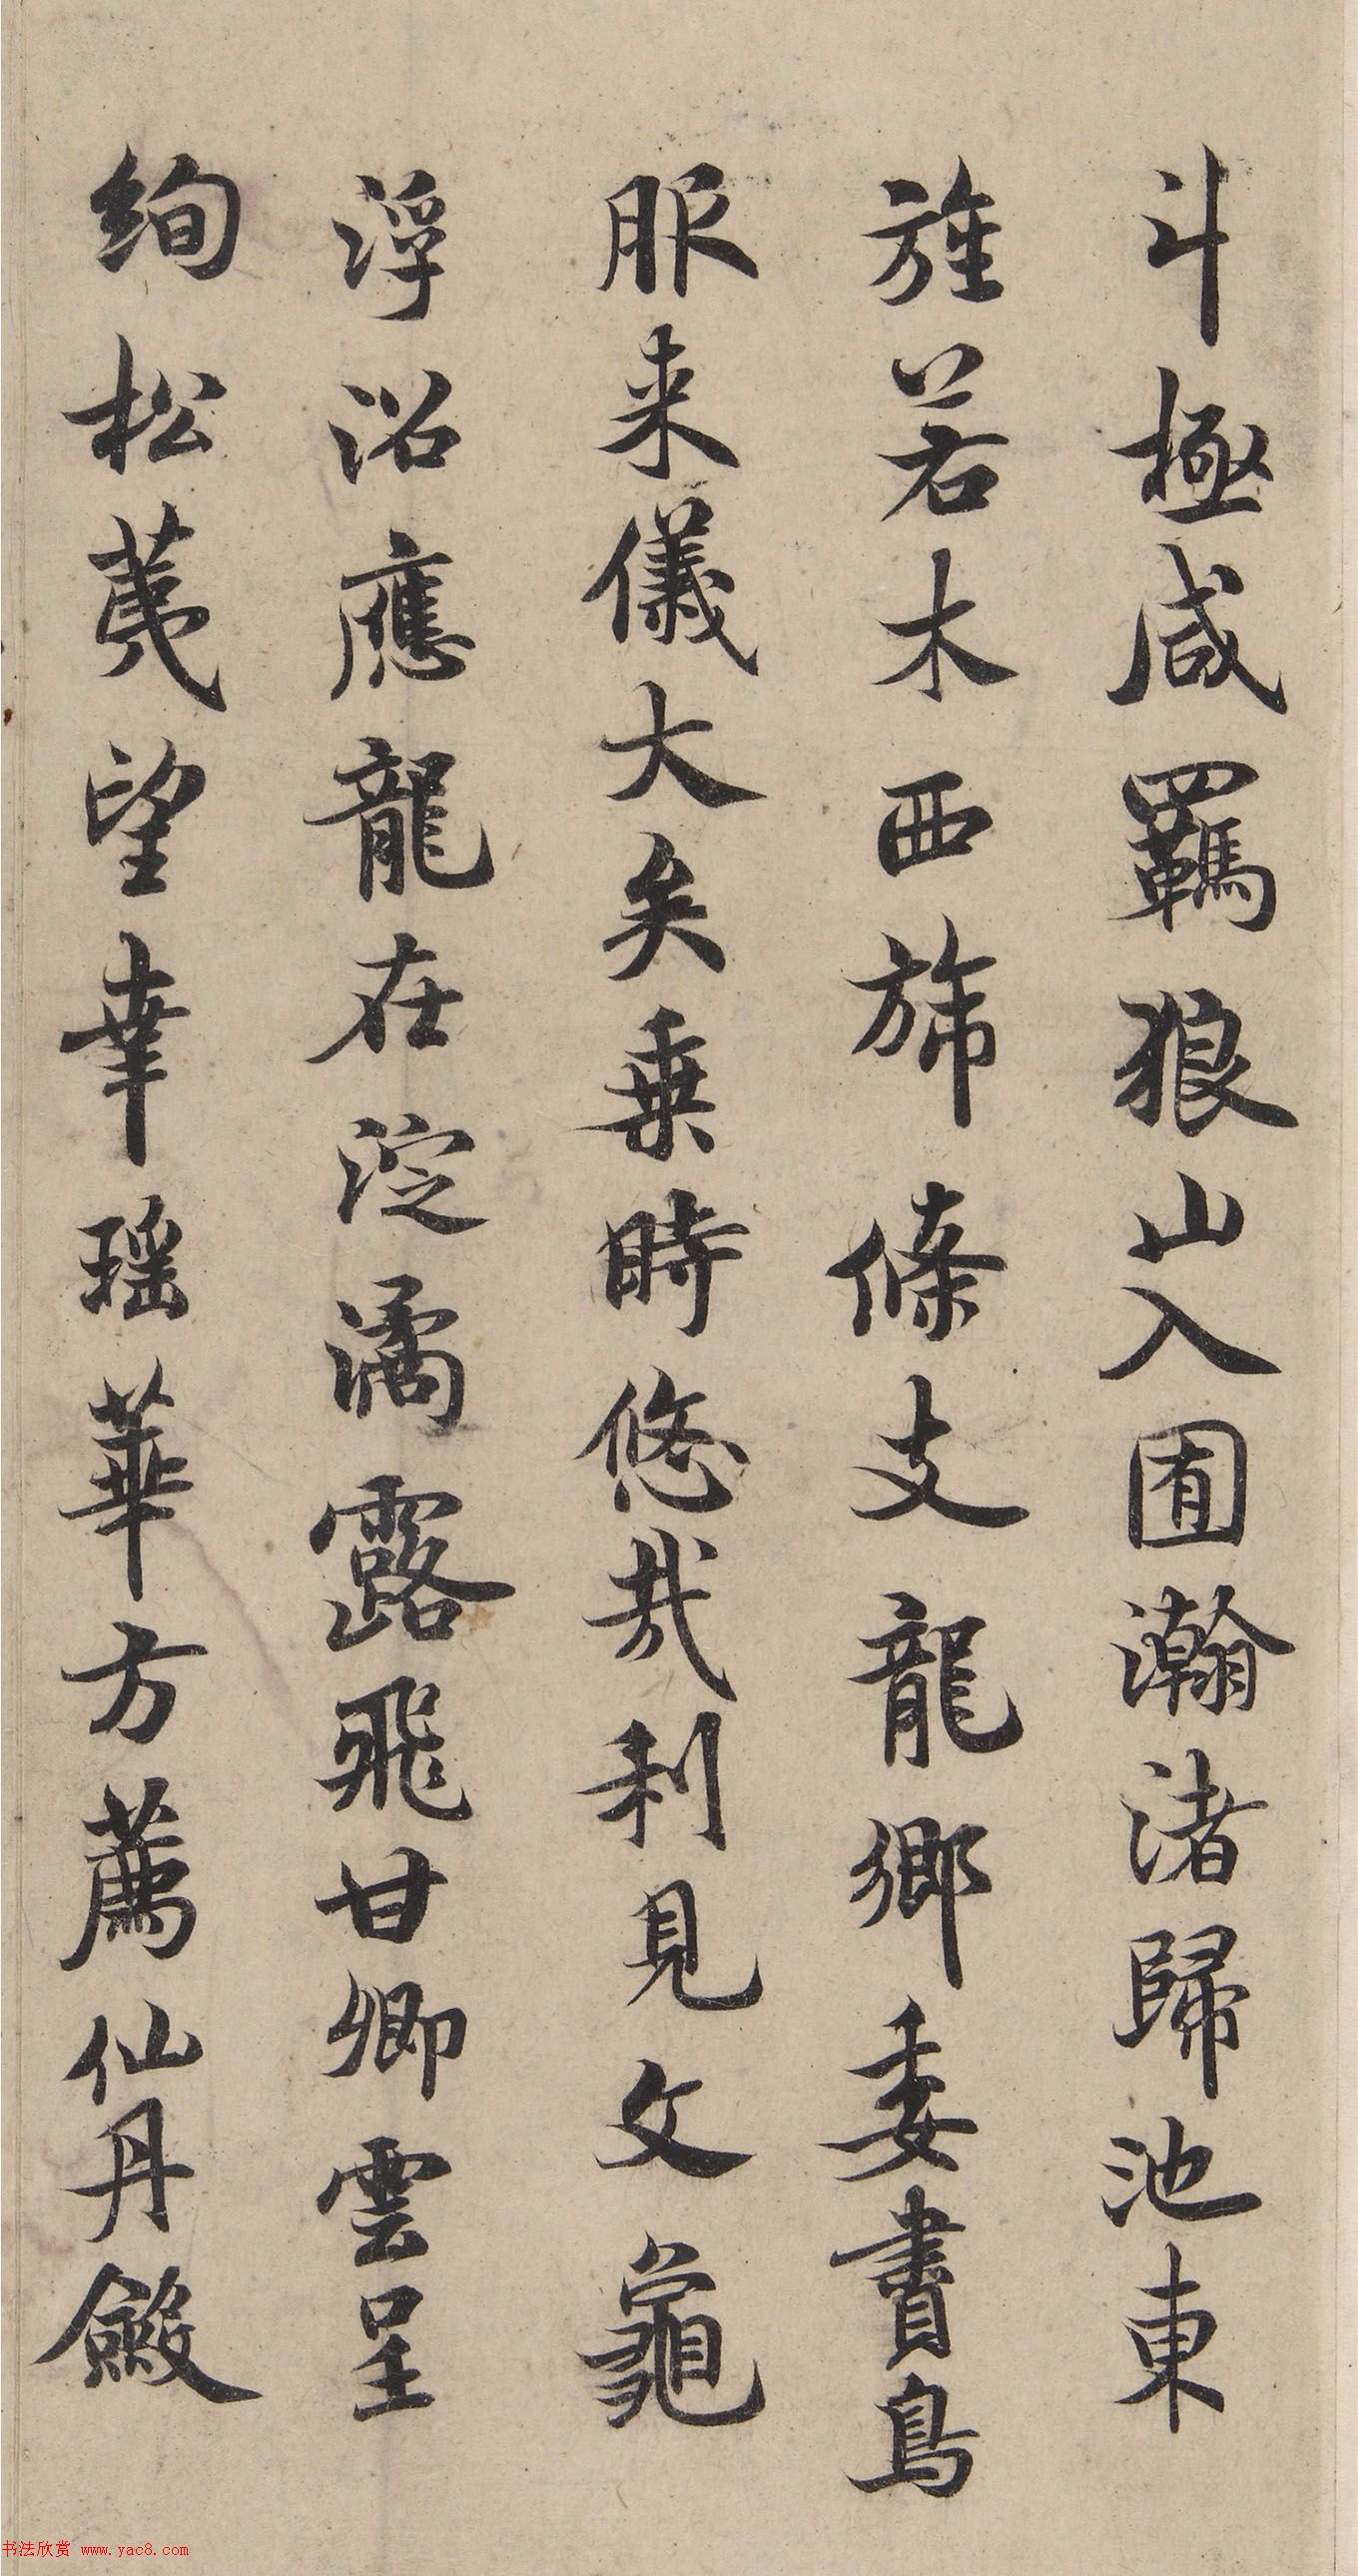 斗極咸羈狼山入囿瀚渚歸池東
旌若木西旆條支龍鄉委賮鳥
服来儀大矣乗時悠哉利見文龜
浮沼應龍在淀潏露飛甘卿雲呈
絢松荑望幸瑶華方薦仙丹斂
书法欣赏 www.yac8.com